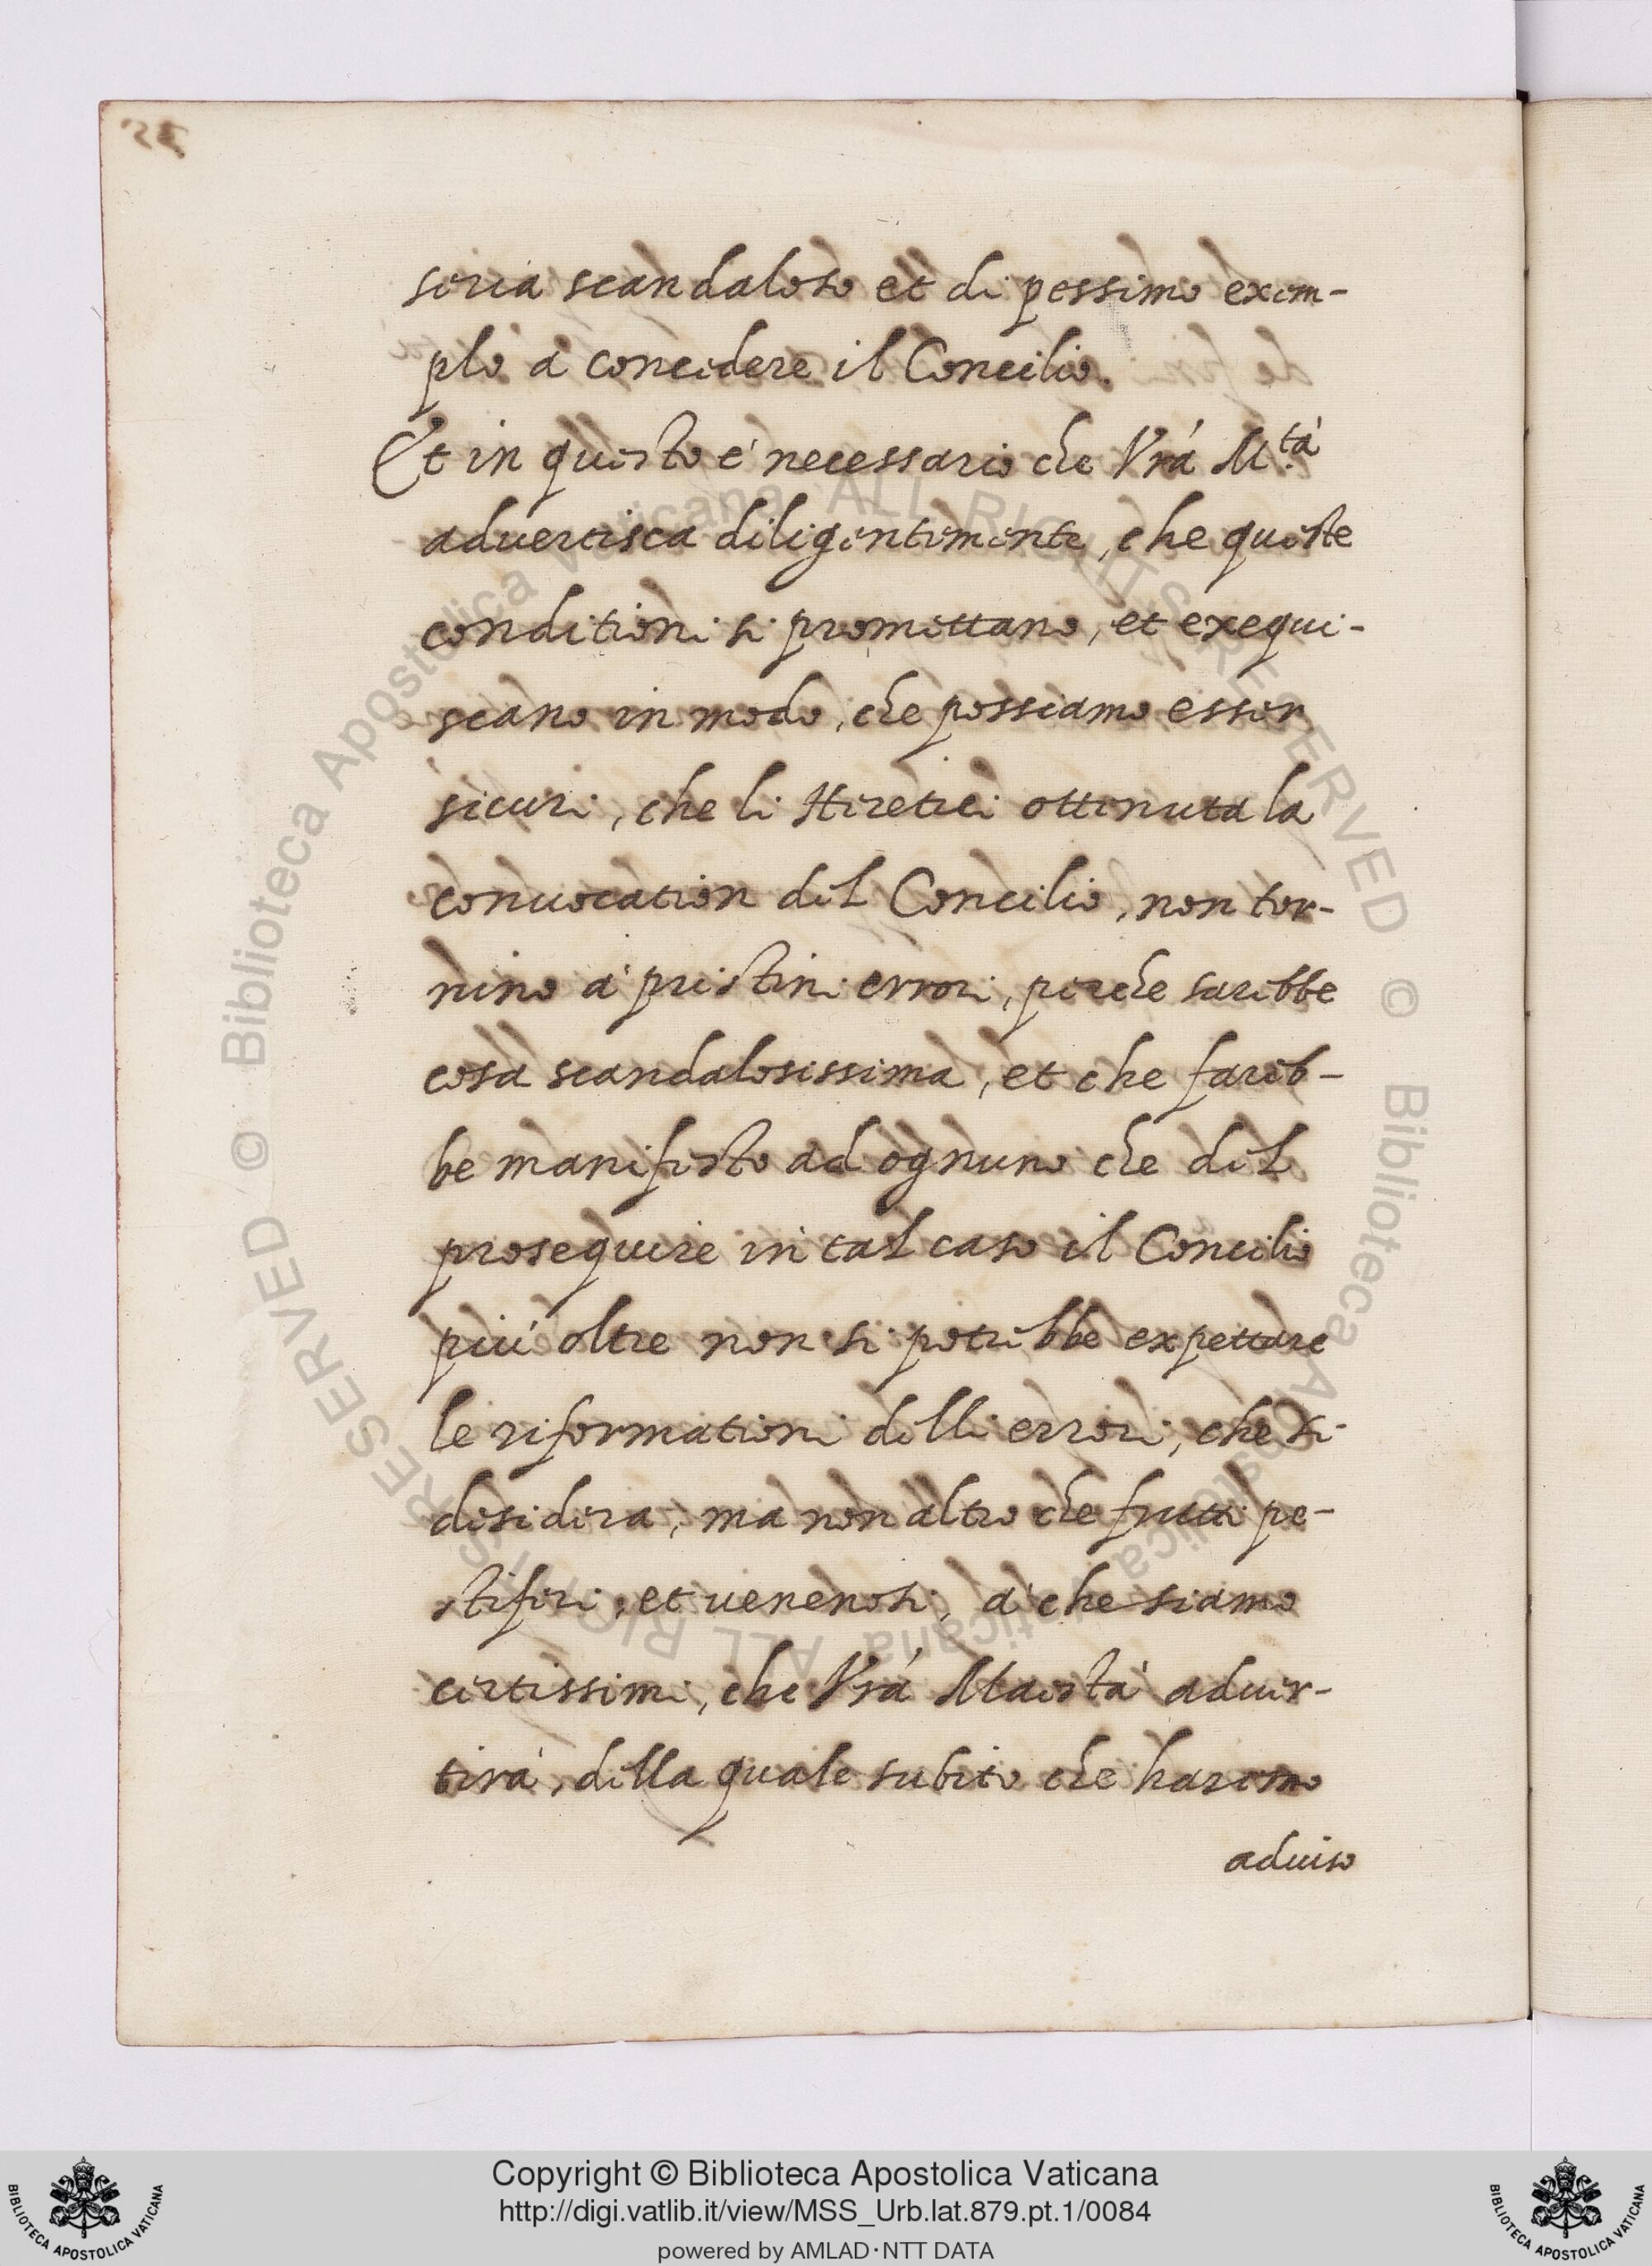 seria scandaloso et di pessimo exem-
plo à concedere il Concilio.
Et in questo è necessario che Vrá M.tà
advertisca diligentemente, che queste
conditioni si promettano, et exequi-
scano in modo, che possiamo esser
sicuri, che li Heretici ottenuta la
convocation del Concilio, non tor-
nino à pristini errori, perche sarebbe
cosa scandalosissima, et che fareb-
be manifesto ad ognuno che del
prosequire in tal caso il Concilio
più oltre non si potrebbe expettare
le riformationi delli errori, che si
desidera, ma non altro che frutti pe-
stiferi, et venenosi, à che siamo
certissimi, che Vrá Maestà adver-
tirà, della quale subito che haremo
aduiso
Biblioteca Apostolica Vaticana ALL RIGHTS RESERVED ©
Biblioteca Apostolica Vaticana ALL RIGHTS RESERVED ©
Copyright © Biblioteca Apostolica Vaticana
http://digi.vatlib.it/view/MSS_Urb.lat.879.pt.1/0084
powered by AMLAD·NTT DATA
BIBLIOTECA APOSTOLICA VATICANA
BIBLIOTECA APOSTOLICA VATICANA